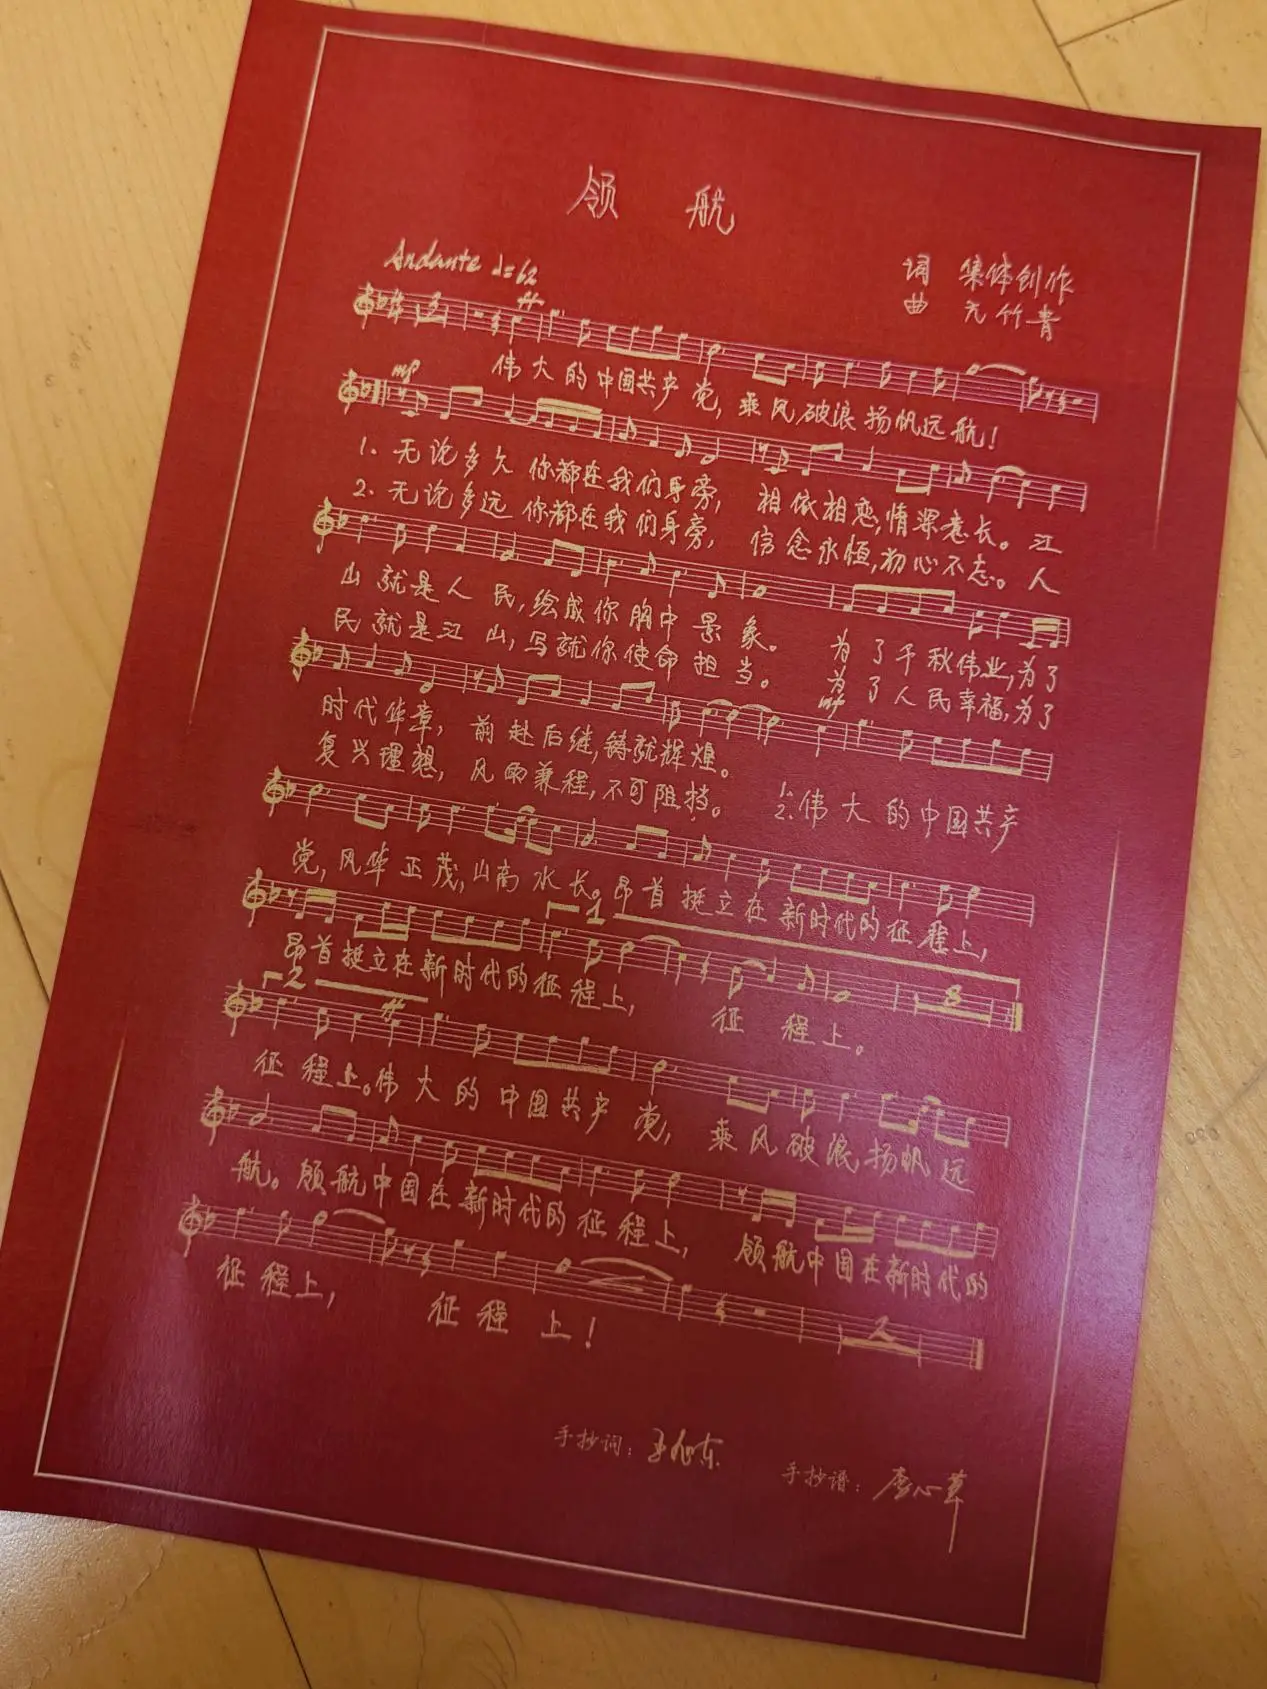 领 航
Andante ♩=62
词 集体创作
曲 亢竹青
ff
伟大的中国共产党，乘风破浪扬帆远航！
mp
1. 无论多久你都在我们身旁，相依相恋，情深意长。江
2. 无论多远你都在我们身旁，信念永恒，初心不忘。人
山就是人民，绘成你胸中景象。为了千秋伟业，为了
民就是江山，写就你使命担当。为了人民幸福，为了
mf
时代华章，前赴后继，铸就辉煌。
复兴理想，风雨兼程，不可阻挡。
1.
2. 伟大的中国共产
党，风华正茂，山高水长。昂首挺立在新时代的征程上，
1
8
昂首挺立在新时代的征程上，征程上。
2
ff
征程上。伟大的中国共产党，乘风破浪扬帆远
航。领航中国在新时代的征程上，领航中国在新时代的
2
征程上，征程上！
手抄词：王沁东
手抄谱：李心草